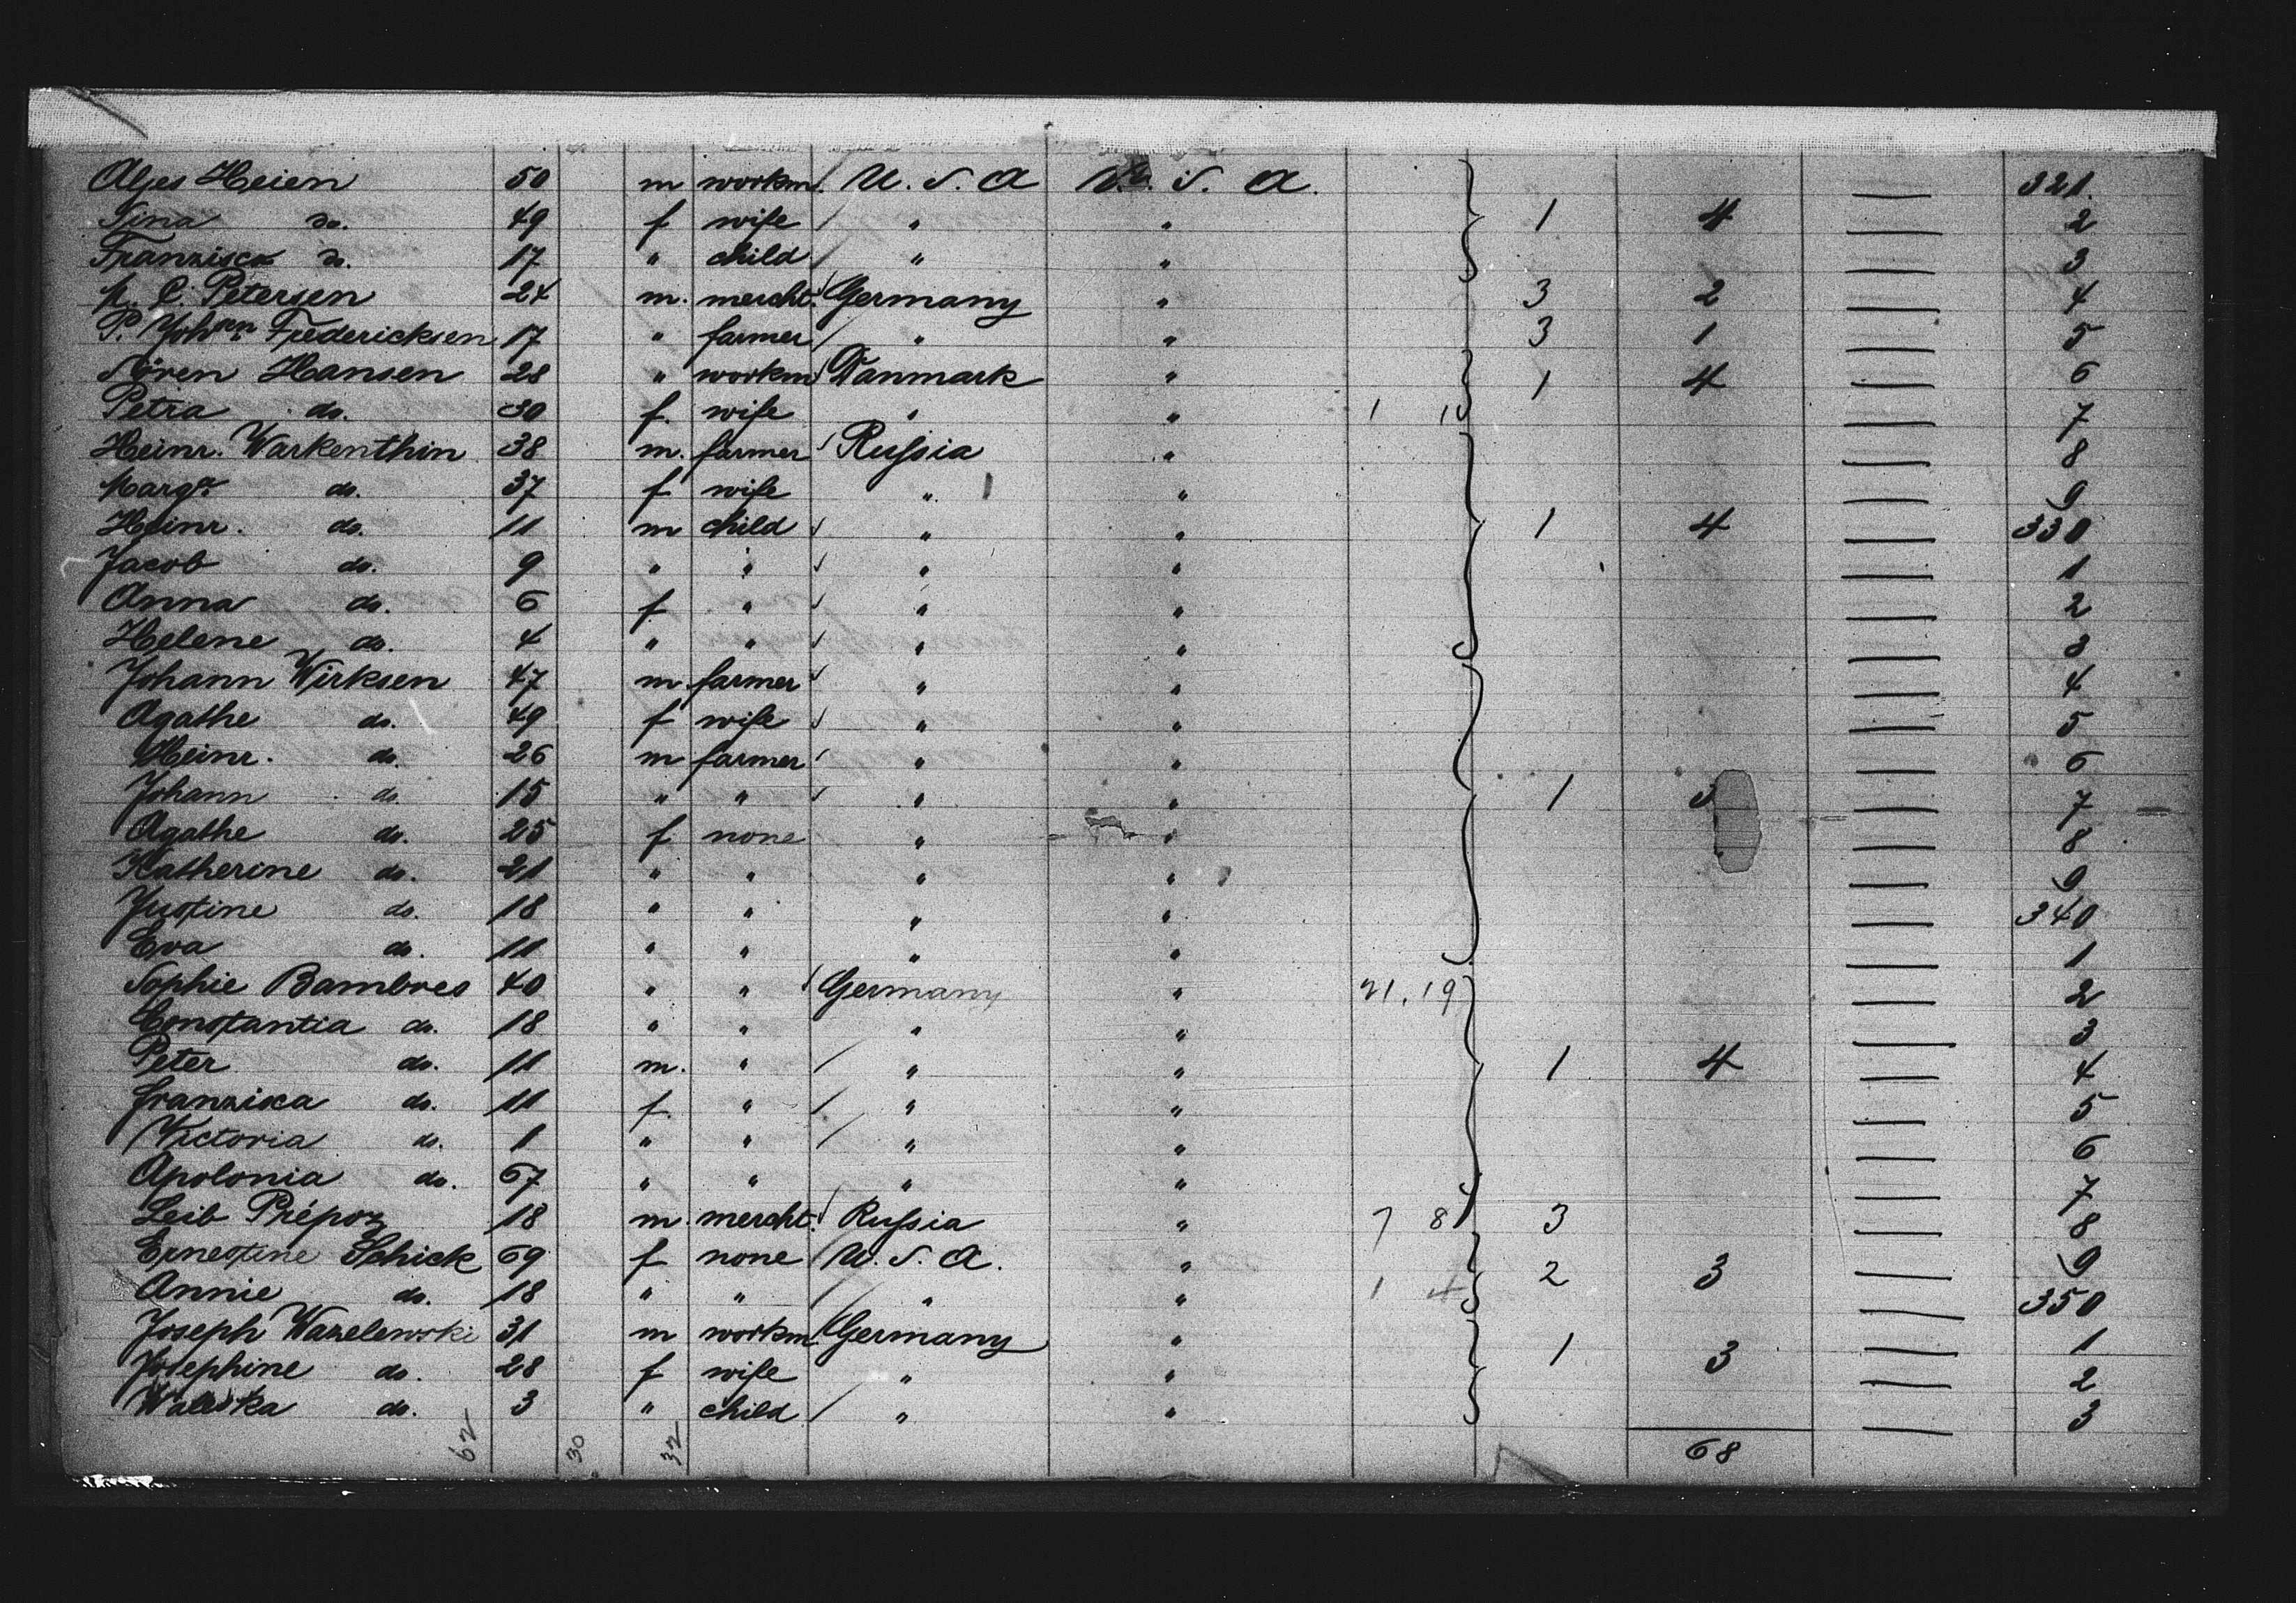 Alges Heien 50 m workm. U. S. A U. S. A. 321.
Tina do. 49 f wife " " 1 4 2
Franzisca do. 17 " child " " 3
M. C. Petersen 24 m. mercht. Germany " 3 2 4
P. Johsen Fredericksen 17 " farmer " " 3 1 5
Sören Hansen 28 " workm Danmark " 1 4 6
Petra do. 30 f. wife " " 1 1 7
Heinr. Warkenthin 38 m. farmer Russia " 8
Marga. do. 37 f wife " " 9
Heinr. do. 11 m child " " 1 4 330
Jacob do. 9 " " " " 1
Anna do. 6 f " " " 2
Helene do. 4 " " " " 3
Johann Wirksen 47 m. farmer " " 4
Agathe do. 49 f wife " " 5
Heinr. do. 26 m farmer " " 6
Johann do. 15 " " " " 1 3 7
Agathe do. 25 f none " " 8
Katherine do. 21 " " " " 9
Justine do. 18 " " " " 340
Eva do. 11 " " " " 1
Sophie Bambres 40 " " Germany " 21, 19 2
Constantia do. 18 " " " " 3
Peter do. 11 m. " " " 1 4 4
Franzisca do. 11 f. " " " 5
Victoria do. 1 " " " " 6
Apolonia do. 67 " " " " 7
Leib Prépoz 18 m. mercht. Russia " 7 8 3 8
Ernestine Schick 69 f none U. S. A. " 2 3 9
Annie do. 18 " " " " 1 4 350
Joseph Wazelewski 31 m workm. Germany " 1
Josephine do. 28 f wife " " 1 3 2
Waleska do. 3 " child " " 3
62 30 32 68